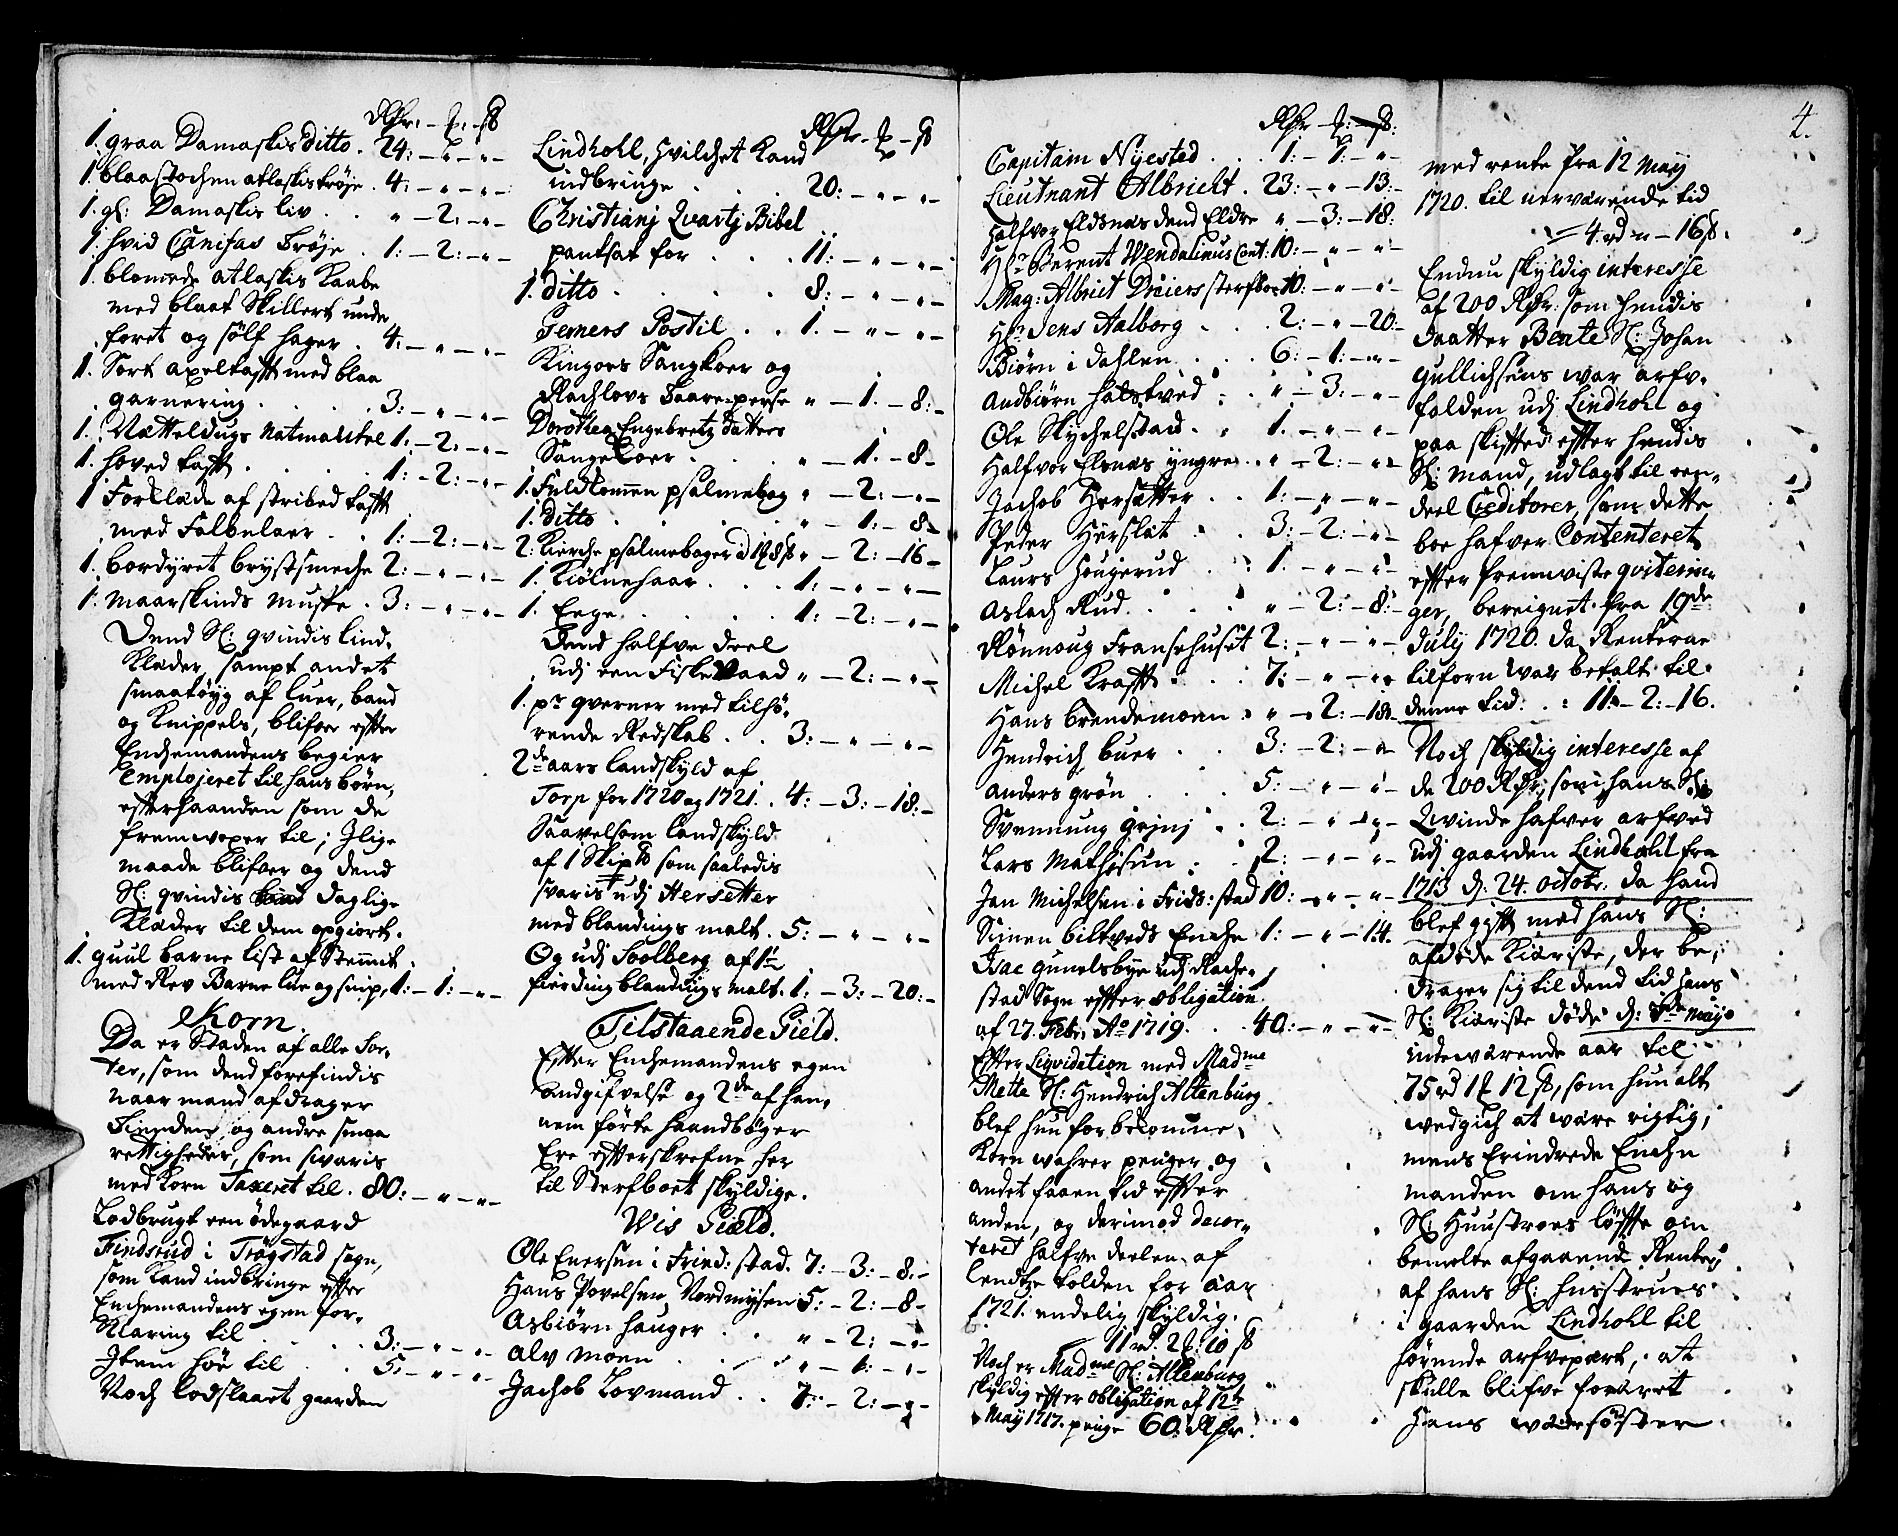 Rdr. - ʒ. - ß
1. graa Damaskis ditto . 24: - „ - „ -
1. blaa stochen atlaskis trøje . 4: - „ - „ -
1. gl: Damaskis liv . . „ - 2: - „ -
1. hvid Canifas trøje . 1: - 2: - „ -
1. blomede atlaskis Kaabe
med blaat Skillert under
foret og sølf hager . 4: - „ - „ -
1. Sort axeltafft med blaa
garnering . . . . 3: - „ - „ -
1. Natteldugs Natmantel 1: - 2: - „ -
1. hoved tafft . . . . 1: - 2: - „ -
1 Forklæde af stribed tafft
med Falbelaer . . 1: - 2: - „ -
1. bordyret brystsmeche 2: - „ - „ -
1. Maarskinds Muffe . 3: - „ - „ -
Dend Sl: qvindis lind-
Klæder, sampt andet
smaatøyg af luer, band
og Knippels, blifver effter
Enchemandens begier
Emploijeret til hans børn,
efterhaanden som de
fremvoxer til; I lige
maade blifver og dend
Sl: qvindis daglige
Klæder til dem opgiort.
1. guul barne list af Stemmet
med Rev Barne lue og snip, 1: - 1: - „ -
Korn.
Da er Staden af alle Sor-
ter, som dend forefindis
naar mand afdrager
Tienden og andre smaa
rettigheder, som svaris
med Korn Taxeret til . 80: - „ - „ -
Lodbrugt een ødegaard
Findsrud i Trøgstad sogn,
som Kand indbringe effter
Enchemandens egen for-
Klaring til . . . . 3: - „ - „ -
Item høe til . . . 5: - „ - „ -
Noch lodslaaet gaarden
Rdr - ʒ - ß
Lindhohl, hvilchet Kand
indbringe . . . . 20: - „ - „ -
Christianj Qvartj Bibel
pantsat for . . . . 11: - „ - „ -
1. ditto . . . . . 8: - „ - „ -
Jemers Postil . . 1. - „ - „ -
Kingoes Sangkoer og
Rachlovs Taare-perse „ - 1. - 8: -
Dorothea Engebretz datters
Sangekoer . . . . „ - 1. - 8 -
1. Fuldkommen psalmebog „ - 2: - „ -
1. ditto . . . . . „ - 1: - 8 -
2: Kierche psalmebøger „ - 2: - 16 -
1. Kiølnehaar . . . 1: - „ - „ -
1. Eege . . . . . 1: - 2: - „ -
Dend halfve deel
udj een Fiske Vaad „ - 2: - „ -
1. pr qverner med tilhø-
rende Redskab . . 3: - „ - „ -
2de aars landskyld af
Torp for 1720 og 1721. . 4: - 3: - 18: -
Saavelsom landskyld
af 1 Skip℔ som saaledis
svaris udj Hersetter
med blandings malt . 5: - „ - „ -
Og udj Soolberg af 1½
fierding blandings malt . 1: - 3: - 20: -
Tilstaaende Gield.
Effter Enchemandens egen
andgifvelse og 2de af han-
nem førte haandbøger
Ere effterskrefne her
til Sterfboet skyldige.
Wis Gield.
Ole Enersen i Frid: stad . 7: - 3: - 8: -
Hans Povelsen Nordmysen 5: - 2: - 8 -
Asbiørn hauger . . „ - 2: - „ -
Alv moen . . . . „ - 1: - „ -
Jachob Lovmand . . 7: - 2: - „ -
Rdr - ʒ: - ß:
Capitain Nyested . . . 1: - 1: - „ -
Lieutnant Albricht . 23: - „ - 13: -
Halfvor Eldsnæs dend Eldre „ - 3: - 18:
Hr. Berent Wendalinus Cont: 10: - „ - „ -
Mag: Albrict Dreiers sterfboe 10: - „ - „ -
Hr. Jens Aalborg . . . 2: - „ - 20: -
Biørn i dahlen . . . 6: - 1: - „ -
Andbiørn halstved . . „ - 3: - „ -
Ole Skychelstad . . 1. - „ - „ -
Halfvor Elsnæs yngre . . „ - 2: - „ -
Jachob Hersetter . . 1: - „ - „ -
Peder Hersløt . . 3: - 2: - „ -
Laurs Hougerud . . . 1: - „ - „ -
Aslach Rud . . . . „ - 2: - 8: -
Rønnoug Fransehuset 2: - „ - „ -
Michel Krafft . . . 7: - „ - „ -
Hans brendemoen . „ - 2: - 18 -
Hendrich buer . . 3: - 2: - „ -
Anders grøn . . . 5: - „ - „ -
Svennung . . 2: - „ - „ -
Lars Mathisen . . 2: - „ - „ -
Jen Michelsen i Frids: stad 10: - „ - „ -
Simen biltveds Enche 1: - „ - 14.
Isac gunelsbye udj Rache-
stad Sogn effter obligation
af 27. Febr. Ao 1719. . . 40: - „ - „ -
Effter Liqvidation med Madme
Mette Sl: Hendrich Altenburg
blef hun for bekomne
Korn wahrer penger og
andet faaen tid effter
anden, og derimod decor-
teret halfve deelen af
tolden for aar
1721. endelig skyldig.
11 rd. 2 ʒ. 10 ß
Noch er Madme Sl: Altenburg
skyldig effter obligation af 12te
May 1717. penge 60: Rdr.
4.
med rente fra 12 Maij
1720. til nerværende tid
4 rd „ - 16 ß.
Endnu skyldig interesse
af 200 Rdr. som hendis
daatter Beate Sl: Johan
Gullichsens war arfv-
falden udj Lindhohl og
paa skifftet effter hendis
Sl: mand, udlagt til een-
deel Creditorer, som dette
boe hafver Contenteret
effter fremviste qvitterin-
ger, bereignet fra 19de
July 1720. da Renterne
tilforn war betalt til
denne tid: . : 11: - 2: - 16.
Noch skyldig interesse af
de 200 Rdr. som hans Sl:
Qvinde hafver arfved
udj gaarden Lindhohl fra
1713 d: 24. octobr. da hand
blef gifft med hans Sl:
afdøde Kiæriste, der be-
drager sig til dend tid hans
Sl: Kiæriste døde d: May
indeværende aar til
75 rd 1 ʒ 12 ß, som hun alt
wedgich at være rigtig,
mens Erindrede Enche
manden om hans og
Sl: Huustroes løffte om
bemelte afgaaende Renter
af hans Sl: Huustrues
i gaarden Lindhohl til
hørende arfvepart, at
skulle blifve foræret
hans wærsøster